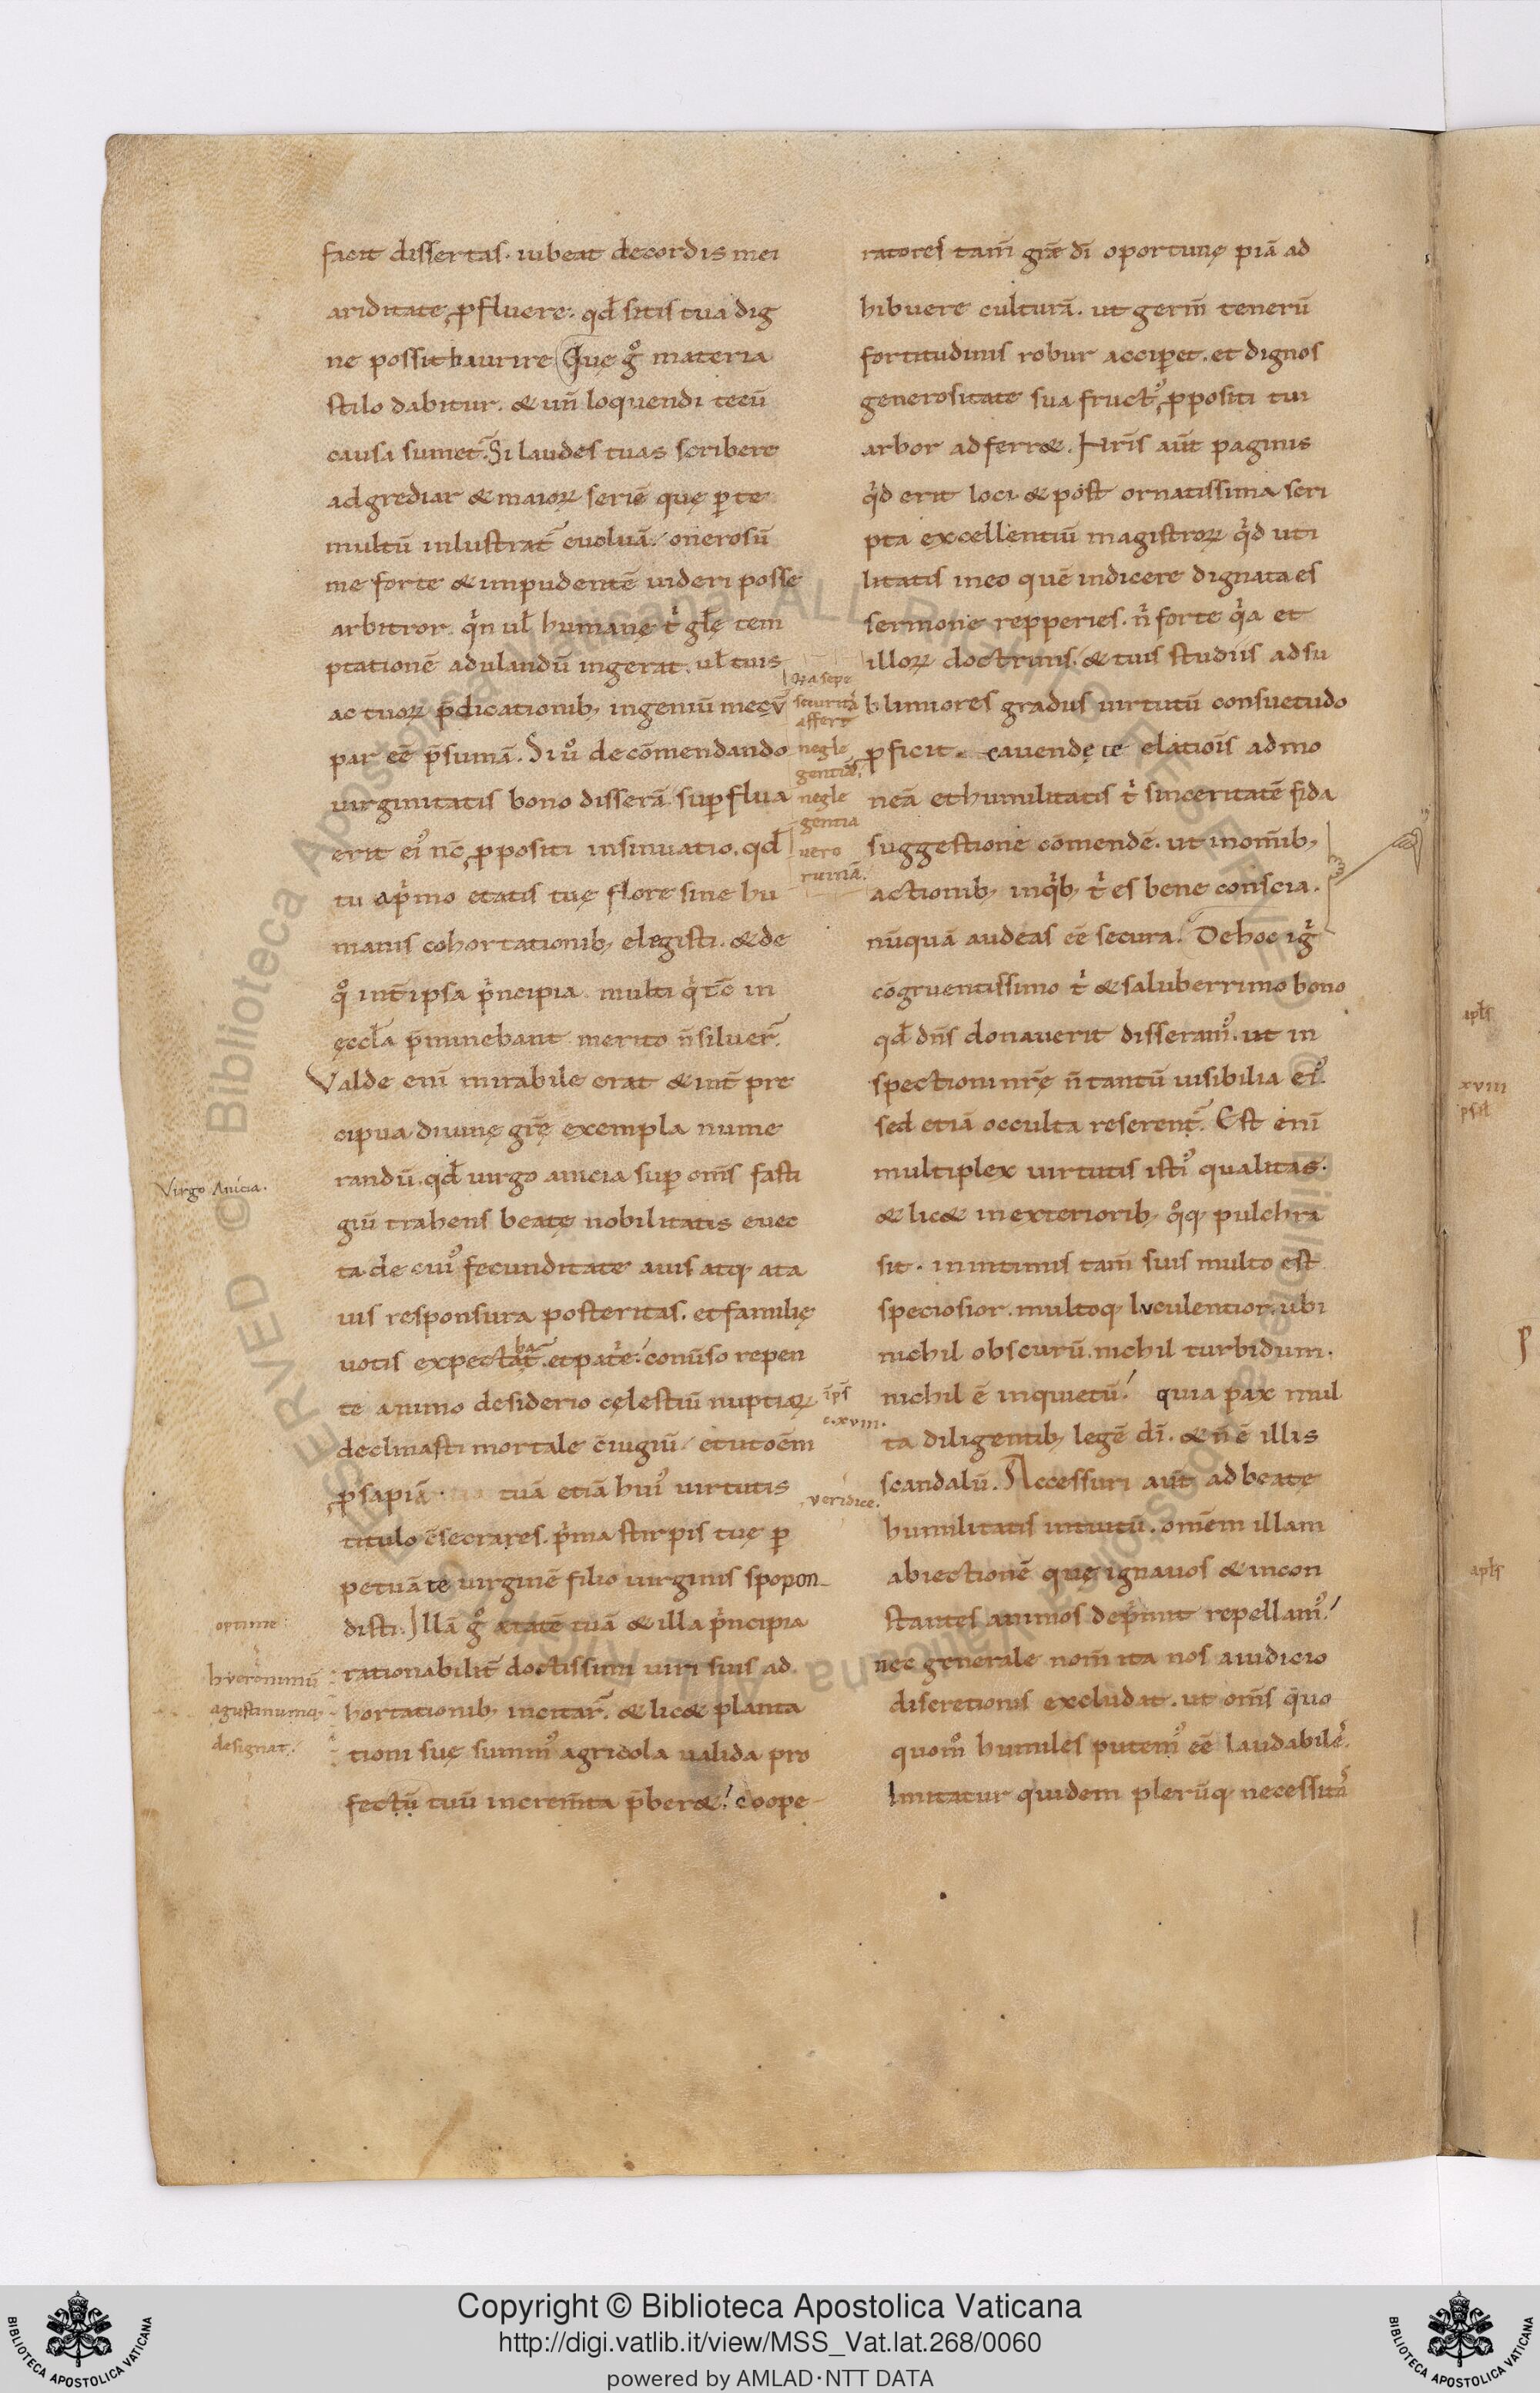 facit dissertas. iubeat de cordis mei
ariditate ꝓfluere. qd̄ sitis tua dig
ne possit haurire Quę gͦ materia
stilo dabitur. & un̄ loquendi tecū
causa sumet᷑. Si laudes tuas scribere
adgrediar & maioꝝ seriē quę ꝑ te
multū inlustrat᷑ euoluā. onerosū
me forte & impudentē uideri posse
arbitror. qͥn ul̄ humanę tͥ gl̄ę tem
ptationē adulandū ingerat. ul̄ tuis
ac tuoꝝ p̄dicationib; ingeniū mecū
par eē p̄sumā. Si uͦ de cōmendando
uirginitatis bono disserā. suꝑflua
erit ei᷒ nc̄ ꝓpositi insinuatio. qd̄
tu a pͥmo etatis tuę flore sine hu
manis cohortationib; elegisti. & de
qͦ int̄ ipsa pͥncipia multi qͥ tc̄ in
ęccl̄a p̄minebant merito n̄ siluer̄.
Valde eni᷑ mirabile erat & int̄ pre
cipua diuinę gr̄ę exempla nume
randū. qd̄ uirgo anicia suꝑ om̄s fasti
giū trahens beatę nobilitatis euec
ta de cui᷒ fecunditate auis atq; ata
uis responsura posteritas. et familię
uotis expectabat᷑. et pat̄e. conūso repen
te animo desiderio cęlestiū nuptiaꝝ
declinasti mortale c̄iugiū. et ut oēm
ꝓsapiā tuā etiā hui᷒ uirtutis
titulo c̄secrares. pͥma stirpis tuę ꝑ
petuā te uirginē filio uirginis spopon_
disti. Illā gͦ ætatē tuā & illa pͥncipia
rationabilit̄ doctissimi uiri suis ad
hortationib; incitar̄. & lic& planta
tioni suę summ᷒ agricola ualida pro
fectū tuū increm̄ta p̄ber&. coope
ratores tam̄ gr̄æ dī oportunę piā ad
hibuere culturā. ut germ̄ tenerū
fortitudinis robur acciꝑet. et dignos
generositate sua fruct᷒ ꝓpositi tui
arbor adferr&. Nr̄is aūt paginis
qͥd erit loci & post ornatissima scri
pta excellentiū magistroꝝ qͥd uti
litatis in eo quē indicere dignata es
sermone repperies. n̄ forte qͥa et
illoꝝ doctrinis. & tuis studiis ad su
blimiores gradus uirtutū consuetudo
ꝓficit. cauendę te elatiois ad mo
neā et humilitatis tͥ sinceritatē fida
suggestione cōmendē. ut in om̄ib;
actionib; in qͥb; tͥ es bene conscia.
nūquā audeas eē secura. De hoc igͥ
cōgruentissimo tͥ & saluberrimo bono
qd̄ dn̄s donauerit disseram᷒. ut in
spectioni nr̄ę n̄ tantū uisibilia ei᷒.
sed etiā occulta reserent᷑. Est enī
multiplex uirtutis isti᷒ qualitas.
& lic& in exteriorib; qͦq; pulchra
sit. in intimis tam̄ suis multo est
speciosior. multoq; luculentior. ubi
nichil obscurū. nichil turbidum.
nichil ē inquietū. quia pax mul
ta diligentib; legē dī. & n̄ ē illis
scandalū. Accessuri aūt ad beate
humilitatis intuitū. omēm illam
abiectionē quę ignauos & incon
stantes animos dep̄mit repellam᷒.
nec generale nom̄ ita nos a iudicio
discretionis excludat. ut om̄s quo
quomͦ humiles putem᷒ eē laudabiles.
Imitatur quidem plerūq; necessita
Virgo Anicia.
securita
affert
negle
gentiā.
negle
gentia
vero
ruinā.
ip̄s
c.xviii.
veridice.
optime
hyeronimū
agustinumq;
designat.
apl̄s
xviii
apl̄s
Copyright © Biblioteca Apostolica Vaticana
http://digi.vatlib.it/view/MSS_Vat.lat.268/0060
powered by AMLAD·NTT DATA
BIBLIOTECA APOSTOLICA VATICANA
BIBLIOTECA APOSTOLICA VATICANA